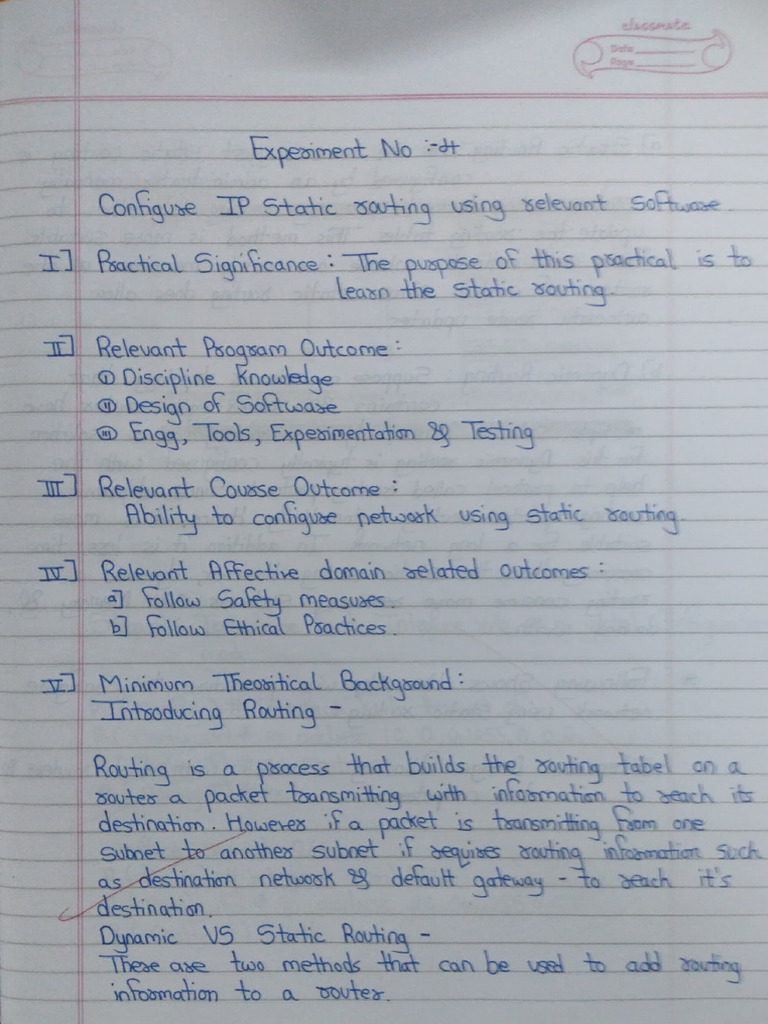 classmate
Date
Page
Experiment No :-
Configure IP Static routing using relevant Software
I] Practical Significance : The purpose of this practical is to
learn the Static routing.
II] Relevant Program Outcome :
i Discipline Knowledge
ii Design of Software
iii Engg, Tools, Experimentation & Testing
III] Relevant Course Outcome :
Ability to configure network using static routing.
IV] Relevant Affective domain related outcomes :
a] Follow Safety measures.
b] Follow Ethical Practices.
V] Minimum Theoritical Background :
Introducing Routing -
Routing is a process that builds the routing tabel on a
router a packet transmitting with information to reach its
destination. However if a packet is transmitting from one
subnet to another subnet if requires routing information such
as destination network & default gateway - to reach it's
destination.
Dynamic VS Static Routing -
There are two methods that can be used to add routing
information to a router.